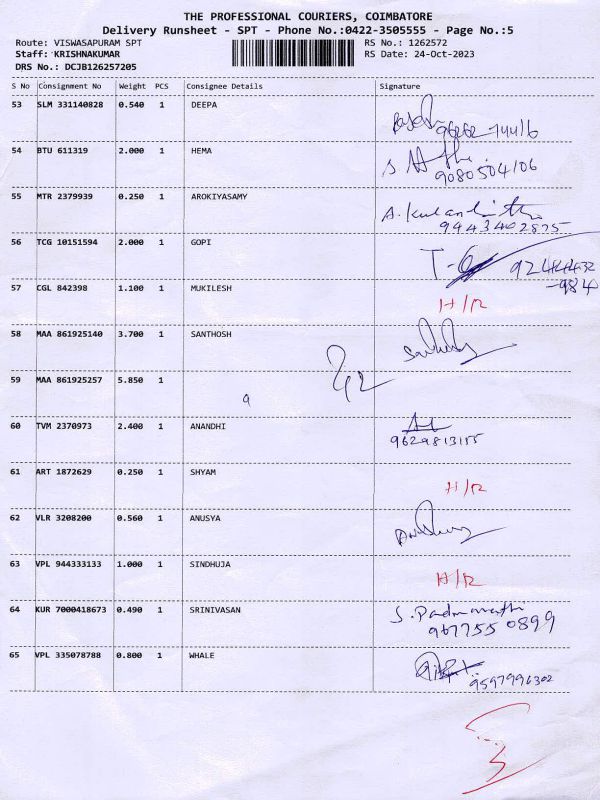 THE PROFESSIONAL COURIERS, COIMBATORE
Delivery Runsheet - SPT - Phone No.:0422-3505555 - Page No.:5
Route: VISWASAPURAM SPT RS No.: 1262572
Staff: KRISHNAKUMAR RS Date: 24-Oct-2023
DRS No.: DCJB126257205
S No Consignment No Weight PCS Consignee Details Signature
53 SLM 331140828 0.540 1 DEEPA
54 BTU 611319 2.000 1 HEMA
9080504106
55 MTR 2379939 0.250 1 AROKIYASAMY
9443402875
56 TCG 10151594 2.000 1 GOPI
57 CGL 842398 1.100 1 MUKILESH
H/R
58 MAA 861925140 3.700 1 SANTHOSH
59 MAA 861925257 5.850 1
60 TVM 2370973 2.400 1 ANANDHI
9629813155
61 ART 1872629 0.250 1 SHYAM
H/R
62 VLR 3208200 0.560 1 ANUSYA
63 VPL 944333133 1.000 1 SINDHUJA
H/R
64 KUR 7000418673 0.490 1 SRINIVASAN
S. Padmavathi
9677550899
65 VPL 335078788 0.800 1 WHALE
9597996302